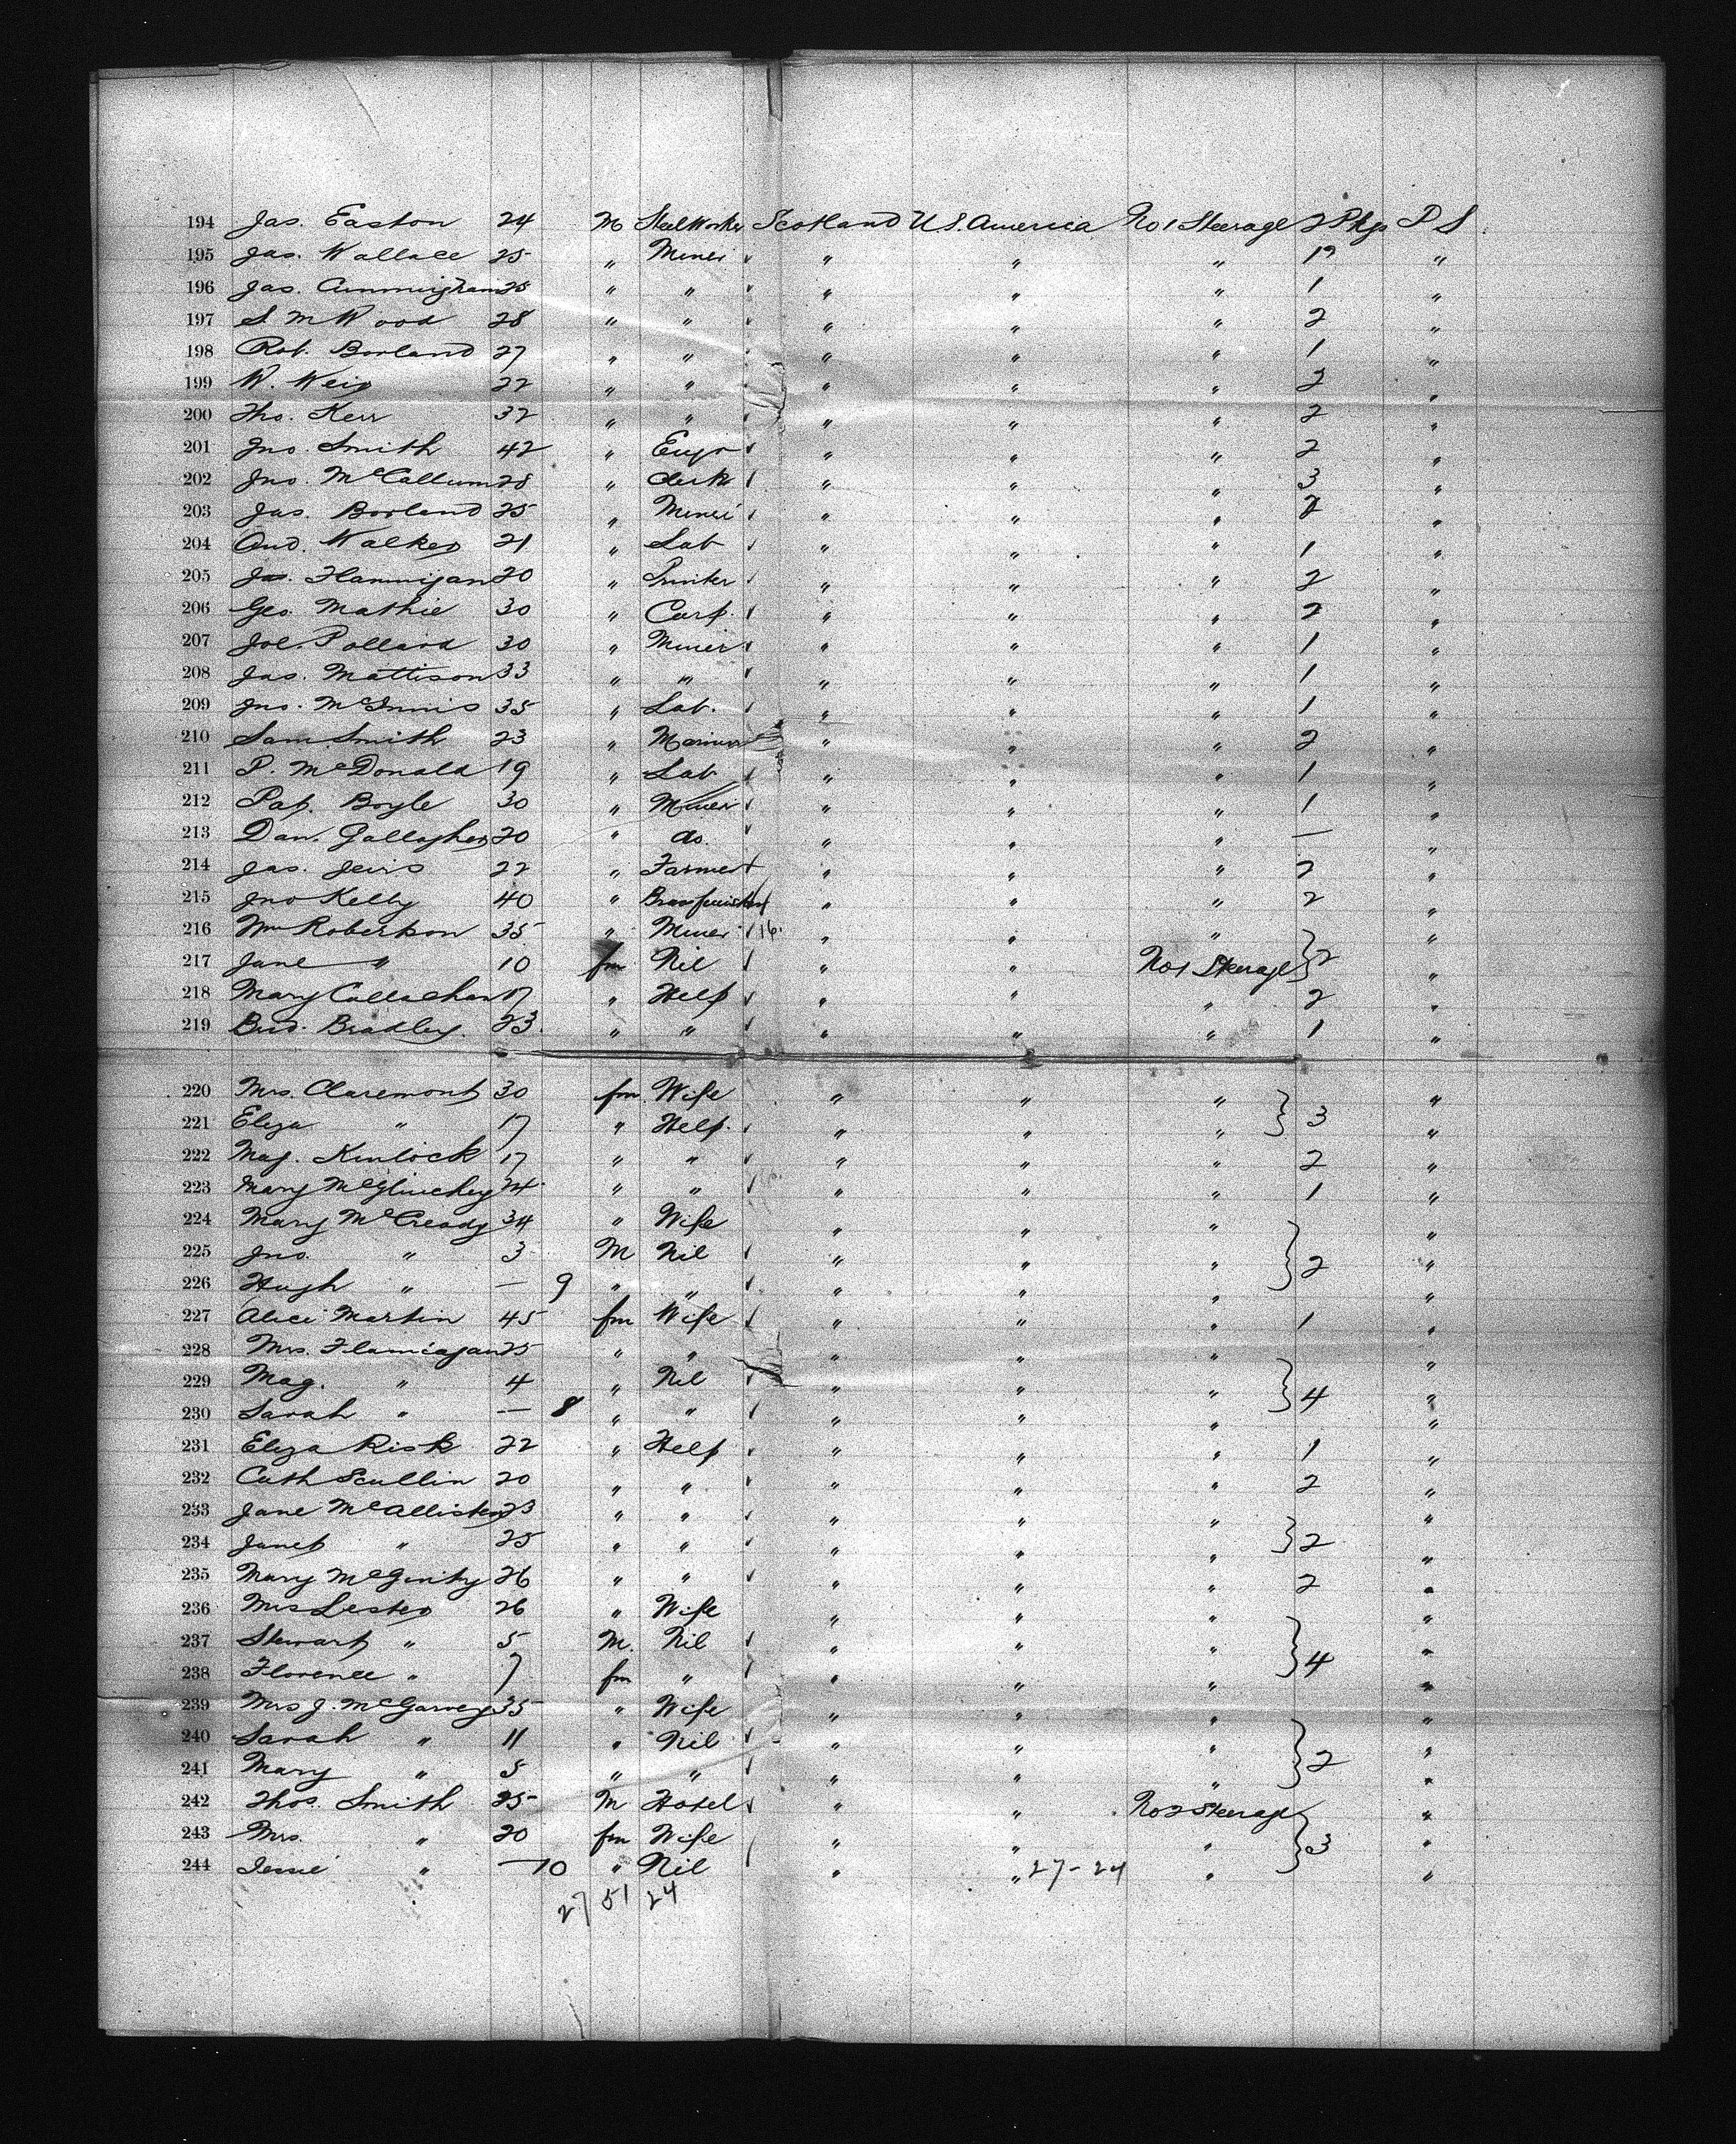 194 Jas. Easton 24 M Steel Worker Scotland U.S. America No 1 Steerage 2 Pkgs P S
195 Jas. Wallace 25 " Miner " " " 1 "
196 Jas. Cunningham 25 " " " " " 1 "
197 S. M Wood 28 " " " " " 2 "
198 Rob. Borland 27 " " " " " 1 "
199 W. Weir 22 " " " " " 2 "
200 Tho. Kerr 32 " " " " " 2 "
201 Jno. Smith 42 " Engr " " " 2 "
202 Jno. McCallum 28 " Clerk " " " 3 "
203 Jas. Borland 25 " Miner " " " 2 "
204 And. Walker 21 " Lab " " " 1 "
205 Jas. Flannigan 20 " Printer " " " 2 "
206 Geo. Mathie 30 " Carp. " " " 2 "
207 Joe. Pollard 30 " Miner " " " 1 "
208 Jas. Mattison 33 " " " " " 1 "
209 Jno. McInnis 35 " Lab. " " " 1 "
210 Sam Smith 23 " Mariner " " " 2 "
211 P. McDonald 19 " Lab " " " 1 "
212 Pat. Boyle 30 " Miner " " " 1 "
213 Dan. Gallagher 20 " do. " " " — "
214 Jas. 22 " Farmer " " " 2 "
215 Jno Kelly 40 " Brassfinisher " " " 2 "
216 Wm Robertson 35 " Miner 16. " " " "
217 Jane " 10 fm Nil " " No 1 Steerage } 2 "
218 Mary Callaghan 17 " Help " " " 2 "
219 Brid. Bradley. 23. " " " " " 1 "
220 Mrs. Claremont 30 fm Wife " " " "
221 Eliza " 17 " Help. " " " } 3 "
222 Mag. Kinlock 17 " " " " " 2 "
223 Mary McGlinchey 24 " " " " " 1 "
224 Mary McCready 34 " Wife " " " "
225 Jno. " 3 M Nil " " " } 2 "
226 Hugh " — 9 " " " " " "
227 Alice Martin 45 fm Wife " " " 1 "
228 Mrs. Flannagan 25 " " " " " "
229 Mag. " 4 " Nil " " " } 4 "
230 Sarah " — 8 " " " " " "
231 Eliza Risk 22 " Help " " " 1 "
232 Cath Scullin 20 " " " " " 2 "
233 Jane McAllister 23 " " " " " "
234 Janet " 25 " " " " " } 2 "
235 Mary McGinty 26 " " " " " 2 "
236 Mrs Lester 26 " Wife " " " "
237 Stewart " 5 M. Nil " " " } 4 "
238 Florence " 7 fm " " " " "
239 Mrs J. McGarvey 35 " Wife " " " "
240 Sarah " 11 " Nil " " " } 2 "
241 Mary " 5 " " " " " "
242 Thos. Smith 25 M Hotel " " No 2 Steerage "
243 Mrs. " 20 fm Wife " " " } 3 "
244 Jessie " — 10 " Nil " " 27-24 " "
27 51 24